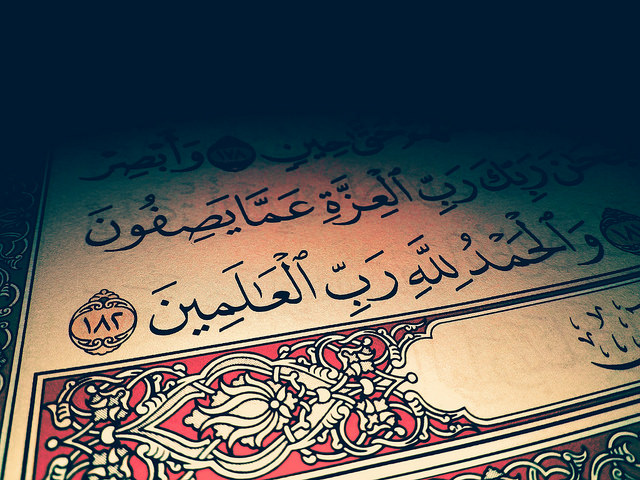 حَتَّىٰ حِينٍ وَأَبْصِرْ
رَبِّكَ رَبِّ ٱلْعِزَّةِ عَمَّا يَصِفُونَ
وَٱلْحَمْدُ لِلَّهِ رَبِّ ٱلْعَـٰلَمِينَ ١٨٢